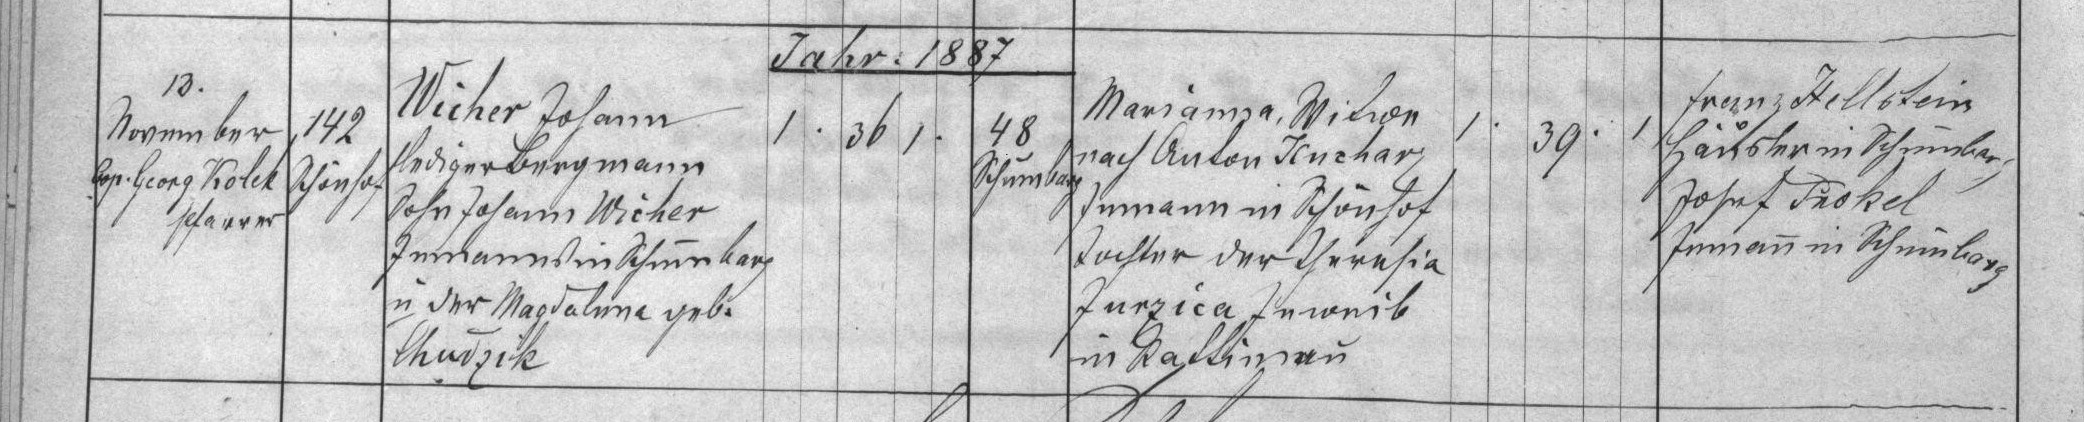 Jahr: 1887
13.
November
Cop. Georg Kolek
Pfarrer
142
Schönhof
Wicher Johann
lediger Bergmann
Sohn Johann Wicher
Inmanns in Schumbarg
u der Magdalena geb.
Chudzik
1. 36 1.
48
Schumbarg
Marianna, Witwe
nach Anton Kucharz
Inmann in Schönhof
Tochter der Theresia
Jurzica Inweib
in Rattimau
1. 39. 1
Franz Hellstein
Häusler in Schumbarg
Josef Fuskel
Inmañ in Schumbarg